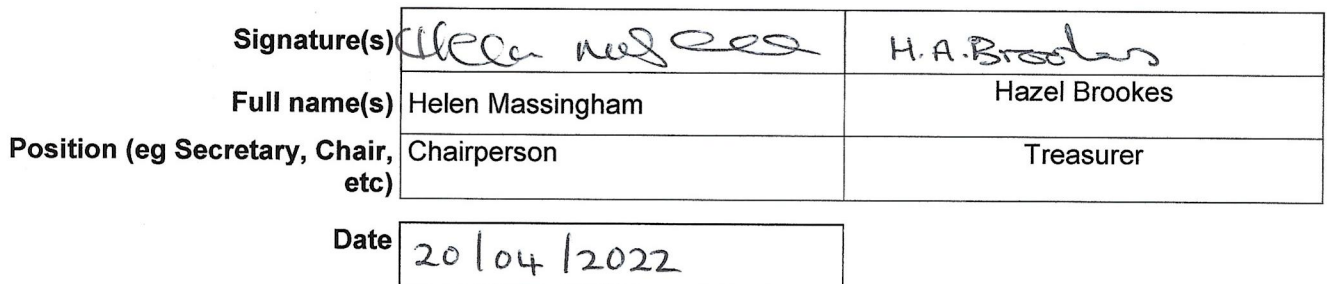 Signature(s) H.A.Brookes
Full name(s) Helen Massingham Hazel Brookes
Position (eg Secretary, Chair, Chairperson Treasurer
etc)
Date 20/04/2022